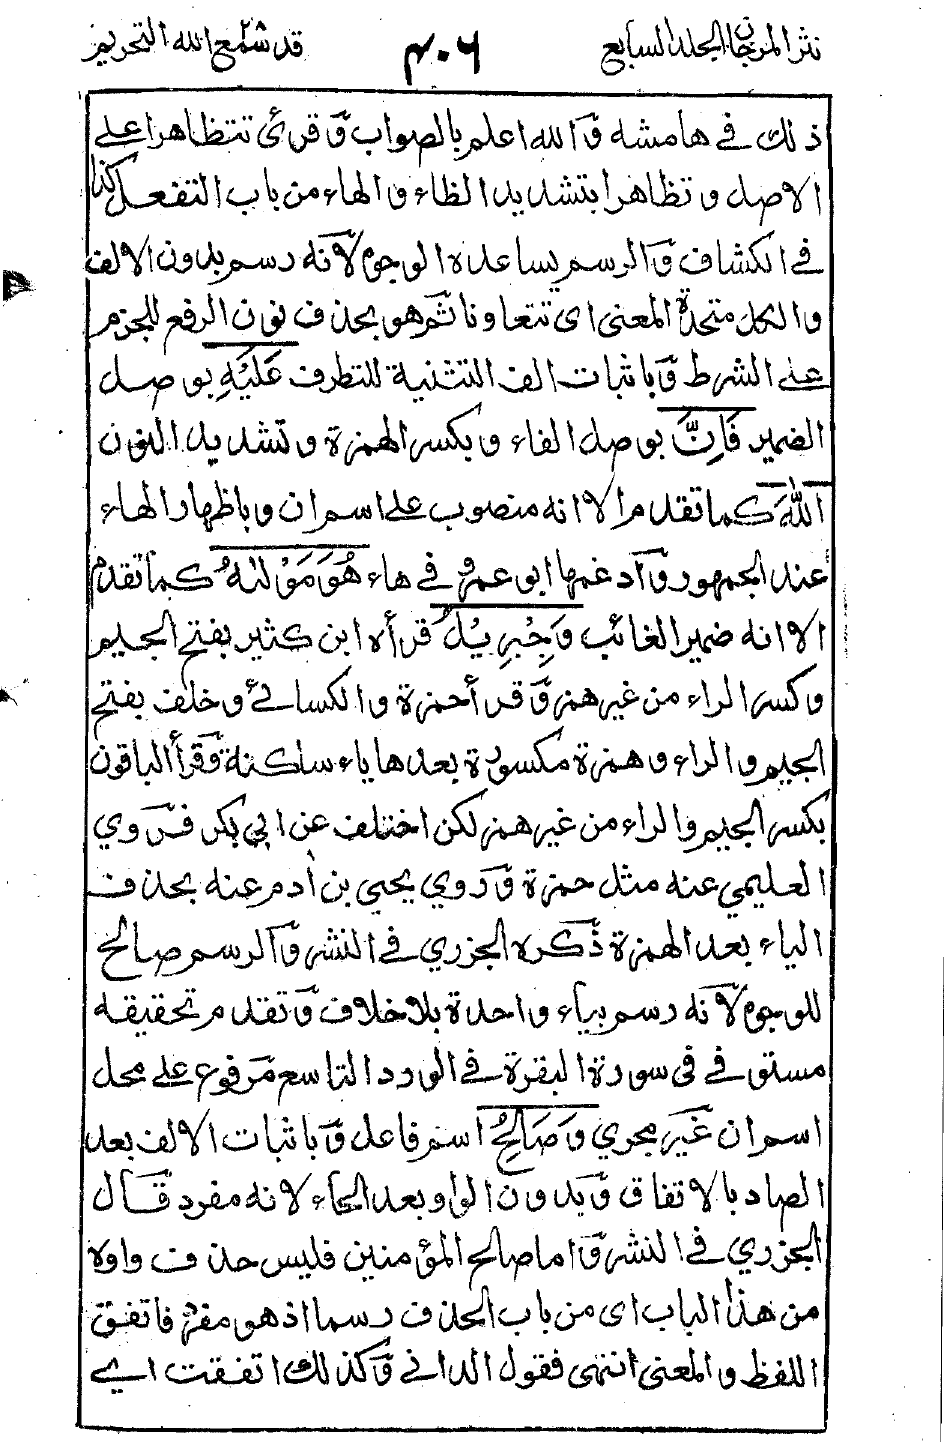 نثر المرجان المجلد السابع
٤٠٦
قد سمع الله التحريم
ذلك في هامشه والله اعلم بالصواب وقرئ تتظاهرا على
الاصل و تظاهرا بتشديد الظاء و الهاء من باب التفعل كذا
في الكشاف و الرسم يساعد الوجوه لانه رسم بدون الالف
و الكل متحدة المعنى اى تتعاونا ثم هو بحذف نون الرفع للجزم
على الشرط و باثبات الف التثنية للتطرف عَلَيْهِ بوصل
الضمير فَاِنَّ بوصل الفاء و بكسر الهمزة و تشديد النون
اللهَ كما تقدم الا انه منصوب على اسم ان و باظهار الهاء
عند الجمهور و ادغمها ابو عمرو في هاء هُوَ مَوْلٰىهُ كما تقدم
الا انه ضمير الغائب وَجِبْرِيْلُ قرأه ابن كثير بفتح الجيم
و كسر الراء من غير همز و قرأ حمزة و الكسائي و خلف بفتح
الجيم و الراء و همزة مكسورة بعدها ياء ساكنة و قرأ الباقون
بكسر الجيم و الراء من غير همز لكن اختلف عن ابي بكر فروي
العليمي عنه مثل حمزة و روي يحيى بن اٰدم عنه بحذف
الياء بعد الهمزة ذكره الجزري في النشر و الرسم صالح
للوجوه لانه رسم بياء واحدة بلا خلاف و تقدم تحقيقه
مستوفى في سورة البقرة في الورد التاسع مرفوع على محل
اسم ان غير مجري وَصَالِحُ اسم فاعل و باثبات الالف بعد
الصاد بالاتفاق و بدون الواو بعد الحاء لانه مفرد قال
الجزري في النشر و اما صالح المؤمنين فليس حذف واوه
من هذا الباب اى من باب الحذف رسما اذ هو مفرد فاتفق
اللفظ و المعنى انتهى فقول الداني و كذلك اتفقت اي